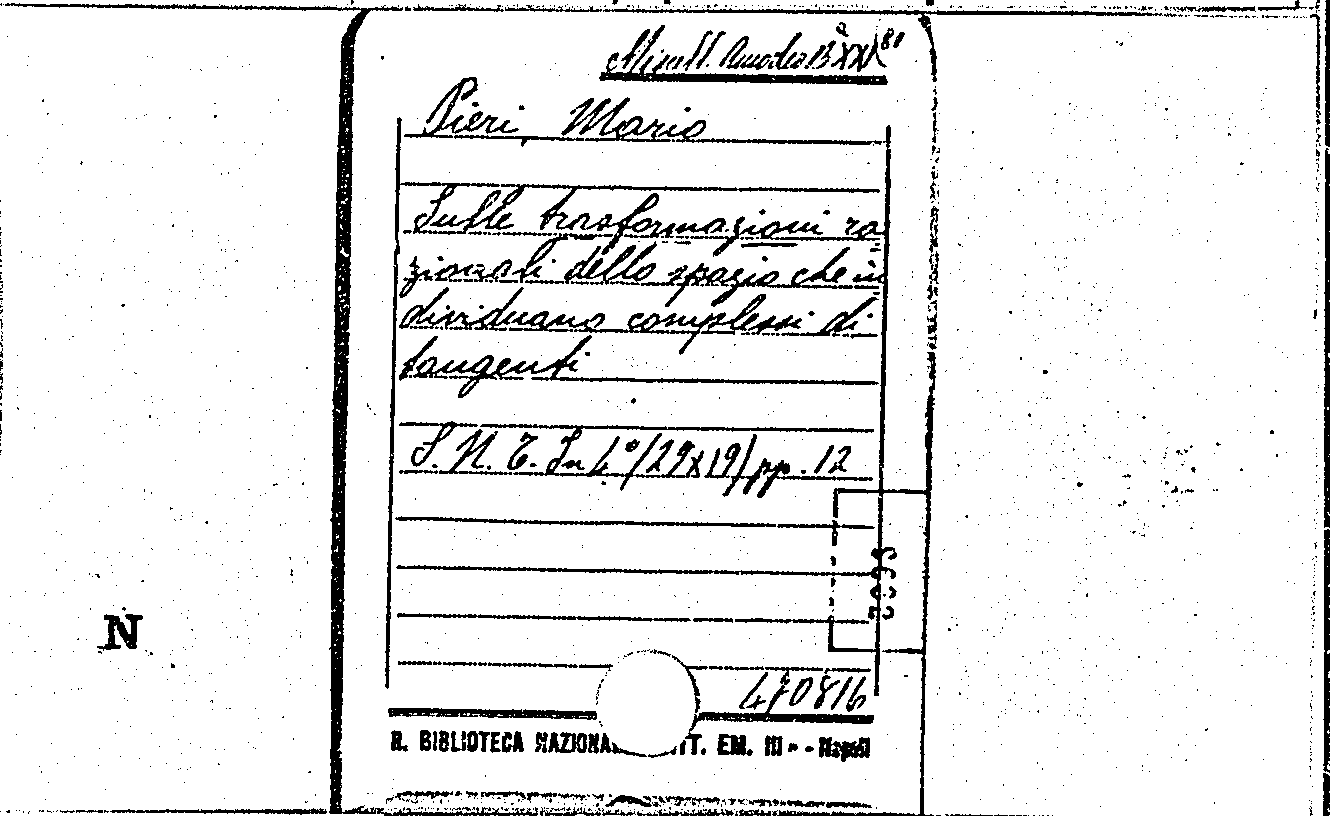 Miscell. Amodeo B XXV 81
Pieri, Mario
Sulle trasformazioni ra
zionali dello spazio che in
dividuano complessi di
tangenti
S. N. T. In 4.° /29x19/ pp. 12
N
470816
R. BIBLIOTECA NAZIONA TT. EM. III" - Napoli